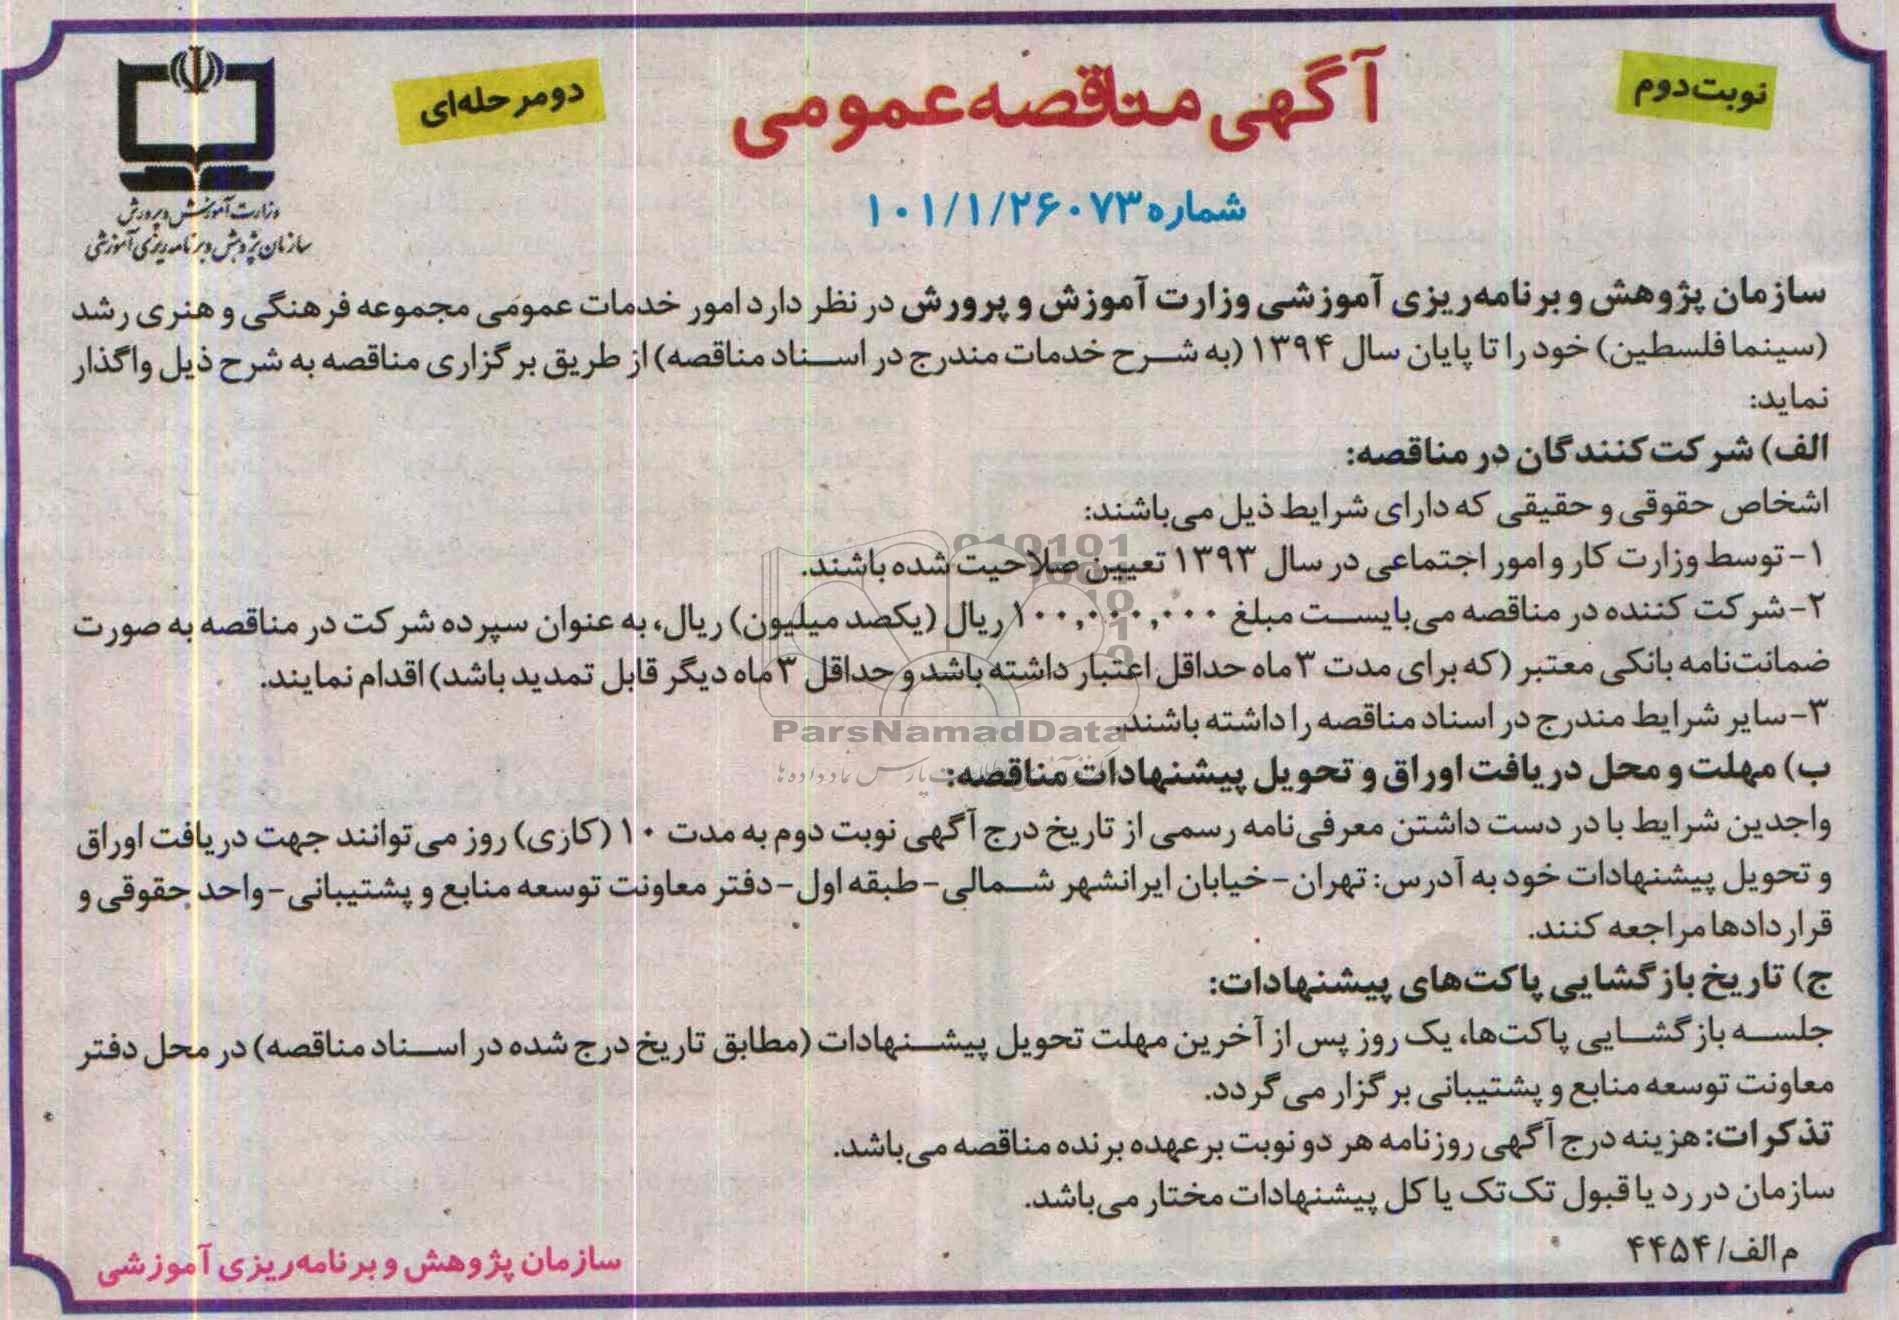 نوبت دوم
آگهی مناقصه عمومی
دومرحله‌ای
شماره ۱۰۱/۱/۲۶۰۷۳
وزارت آموزش و پرورش
سازمان پژوهش و برنامه‌ریزی آموزشی
سازمان پژوهش و برنامه‌ریزی آموزشی وزارت آموزش و پرورش در نظر دارد امور خدمات عمومی مجموعه فرهنگی و هنری رشد
(سینما فلسطین) خود را تا پایان سال ۱۳۹۴ (به شرح خدمات مندرج در اسناد مناقصه) از طریق برگزاری مناقصه به شرح ذیل واگذار
نماید:
الف) شرکت‌کنندگان در مناقصه:
اشخاص حقوقی و حقیقی که دارای شرایط ذیل می‌باشند:
۱- توسط وزارت کار و امور اجتماعی در سال ۱۳۹۳ تعیین صلاحیت شده باشند.
۲- شرکت کننده در مناقصه می‌بایست مبلغ ۱۰۰,۰۰۰,۰۰۰ ریال (یکصد میلیون) ریال، به عنوان سپرده شرکت در مناقصه به صورت
ضمانت‌نامه بانکی معتبر (که برای مدت ۳ ماه حداقل اعتبار داشته باشد و حداقل ۳ ماه دیگر قابل تمدید باشد) اقدام نمایند.
۳- سایر شرایط مندرج در اسناد مناقصه را داشته باشند.
ParsNamadData
ب) مهلت و محل دریافت اوراق و تحویل پیشنهادات مناقصه:
واجدین شرایط با در دست داشتن معرفی‌نامه رسمی از تاریخ درج آگهی نوبت دوم به مدت ۱۰ (کاری) روز می‌توانند جهت دریافت اوراق
و تحویل پیشنهادات خود به آدرس: تهران- خیابان ایرانشهر شمالی- طبقه اول- دفتر معاونت توسعه منابع و پشتیبانی- واحد حقوقی و
قراردادها مراجعه کنند.
ج) تاریخ بازگشایی پاکت‌های پیشنهادات:
جلسه بازگشایی پاکت‌ها، یک روز پس از آخرین مهلت تحویل پیشنهادات (مطابق تاریخ درج شده در اسناد مناقصه) در محل دفتر
معاونت توسعه منابع و پشتیبانی برگزار می‌گردد.
تذکرات: هزینه درج آگهی روزنامه هر دو نوبت بر عهده برنده مناقصه می‌باشد.
سازمان در رد یا قبول تک‌تک یا کل پیشنهادات مختار می‌باشد.
م الف/ ۴۴۵۴
سازمان پژوهش و برنامه‌ریزی آموزشی